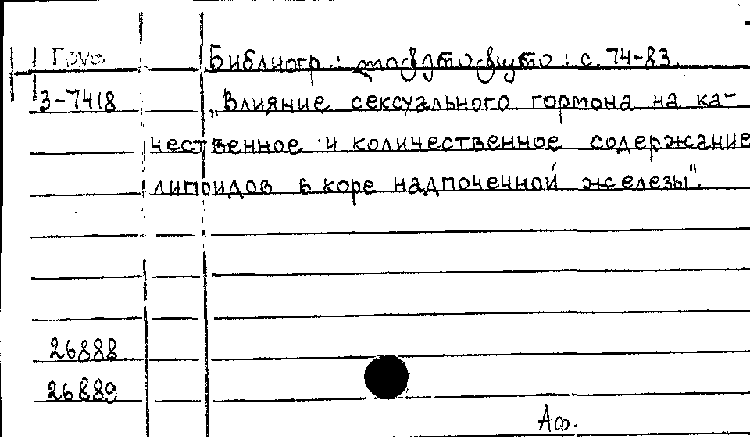 Груз
Библиогр.: : с. 74-83.
3-7418 „Влияние сексуального гормона на ка-
чественное и количественное содержание
липоидов в коре надпочечной железы".
26888
26889
Аф.